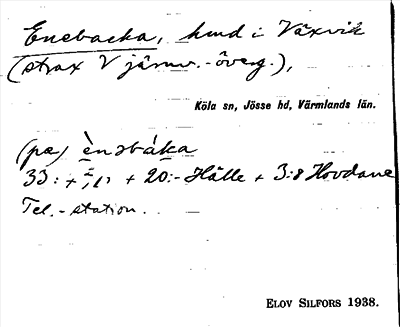 Enebacka, hmd i Växvik
(strax V järnv.-överg.),
Köla sn, Jösse hd, Värmlands län.
(pæ) ènəbáka
33: + + 20:- Hålle + 3:8 Hovdane
Tel.-station.
ELOV SILFORS 1938.